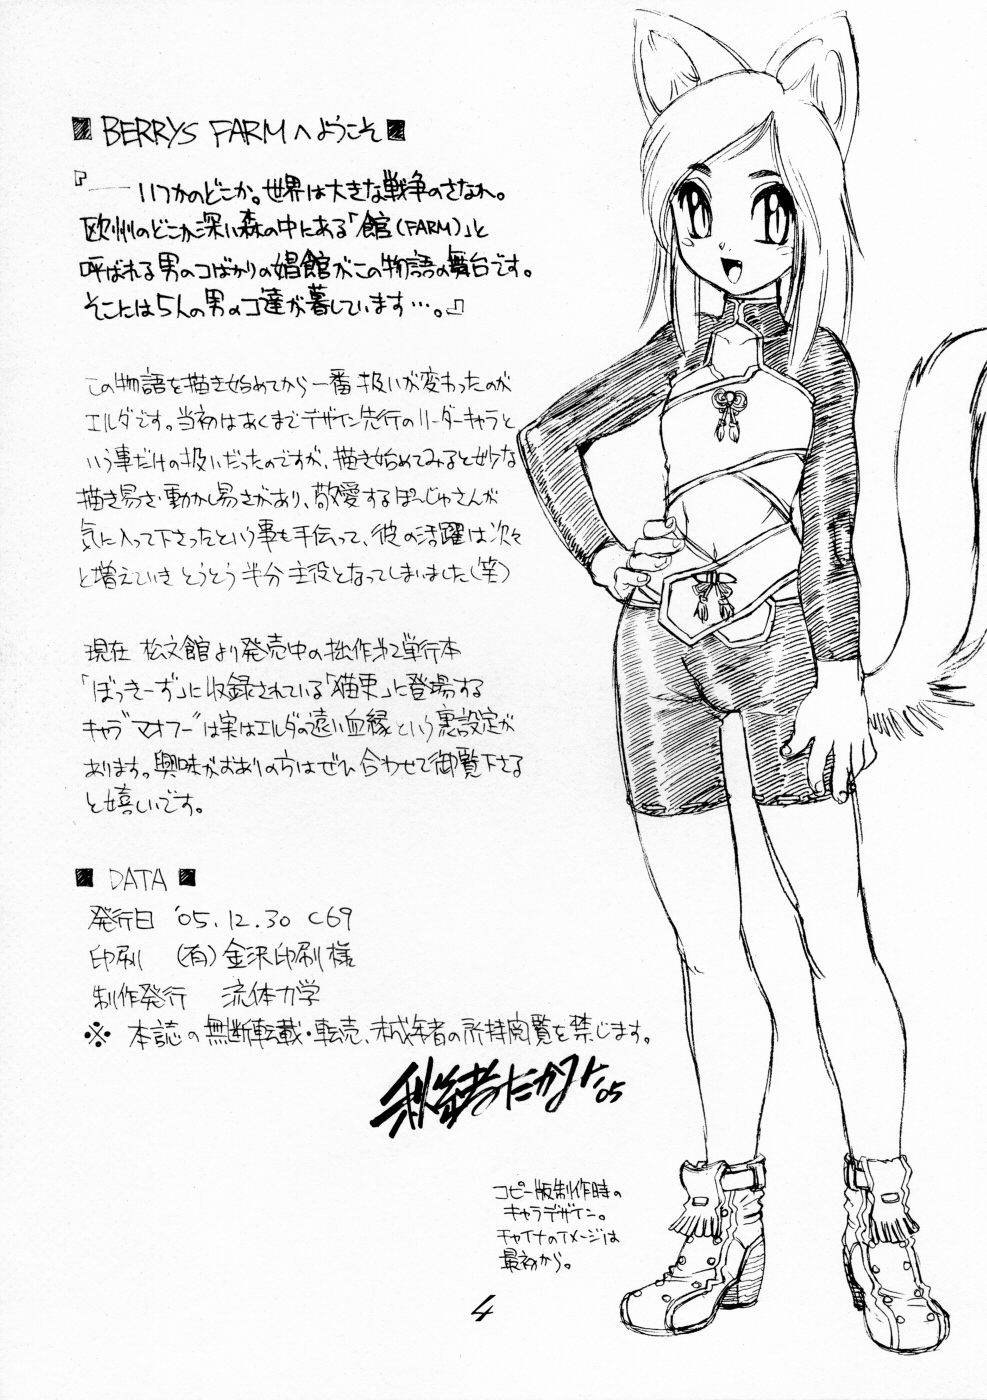 ■ BERRYS FARMへようこそ ■
『――いつかのどこか。世界は大きな戦争のさなか。
欧州のどこか深い森の中にある「館(FARM)」と
呼ばれる男のコばかりの娼館がこの物語の舞台です。
そこには5人の男のコ達が暮しています…。』
この物語を描き始めてから一番扱いが変わったのが
エルダです。当初はあくまでデザイン先行のリーダーキャラと
いう事だけの扱いだったのですが、描き始めてみると妙な
描き易さ・動かし易さがあり、敬愛するぽーじゅさんが
気に入って下さったという事も手伝って、彼の活躍は次々
と増えていきとうとう半分主役となってしまいました(笑)
現在 松文館より発売中の拙作第2単行本
「ぼっきーず」に収録されている「猫東」に登場する
キャラ"マオフー"は実はエルダの遠い血縁という裏設定が
あります。興味がおありの方はぜひ合わせて御覧下さる
と嬉しいです。
■ DATA ■
発行日 '05.12.30 C69
印刷 (有)金沢印刷様
制作発行 流体力学
※ 本誌の無断転載・転売、未成年者の所持閲覧を禁じます。
たかみた '05
コピー版制作時の
キャラデザイン。
チャイナのイメージは
最初から。
4